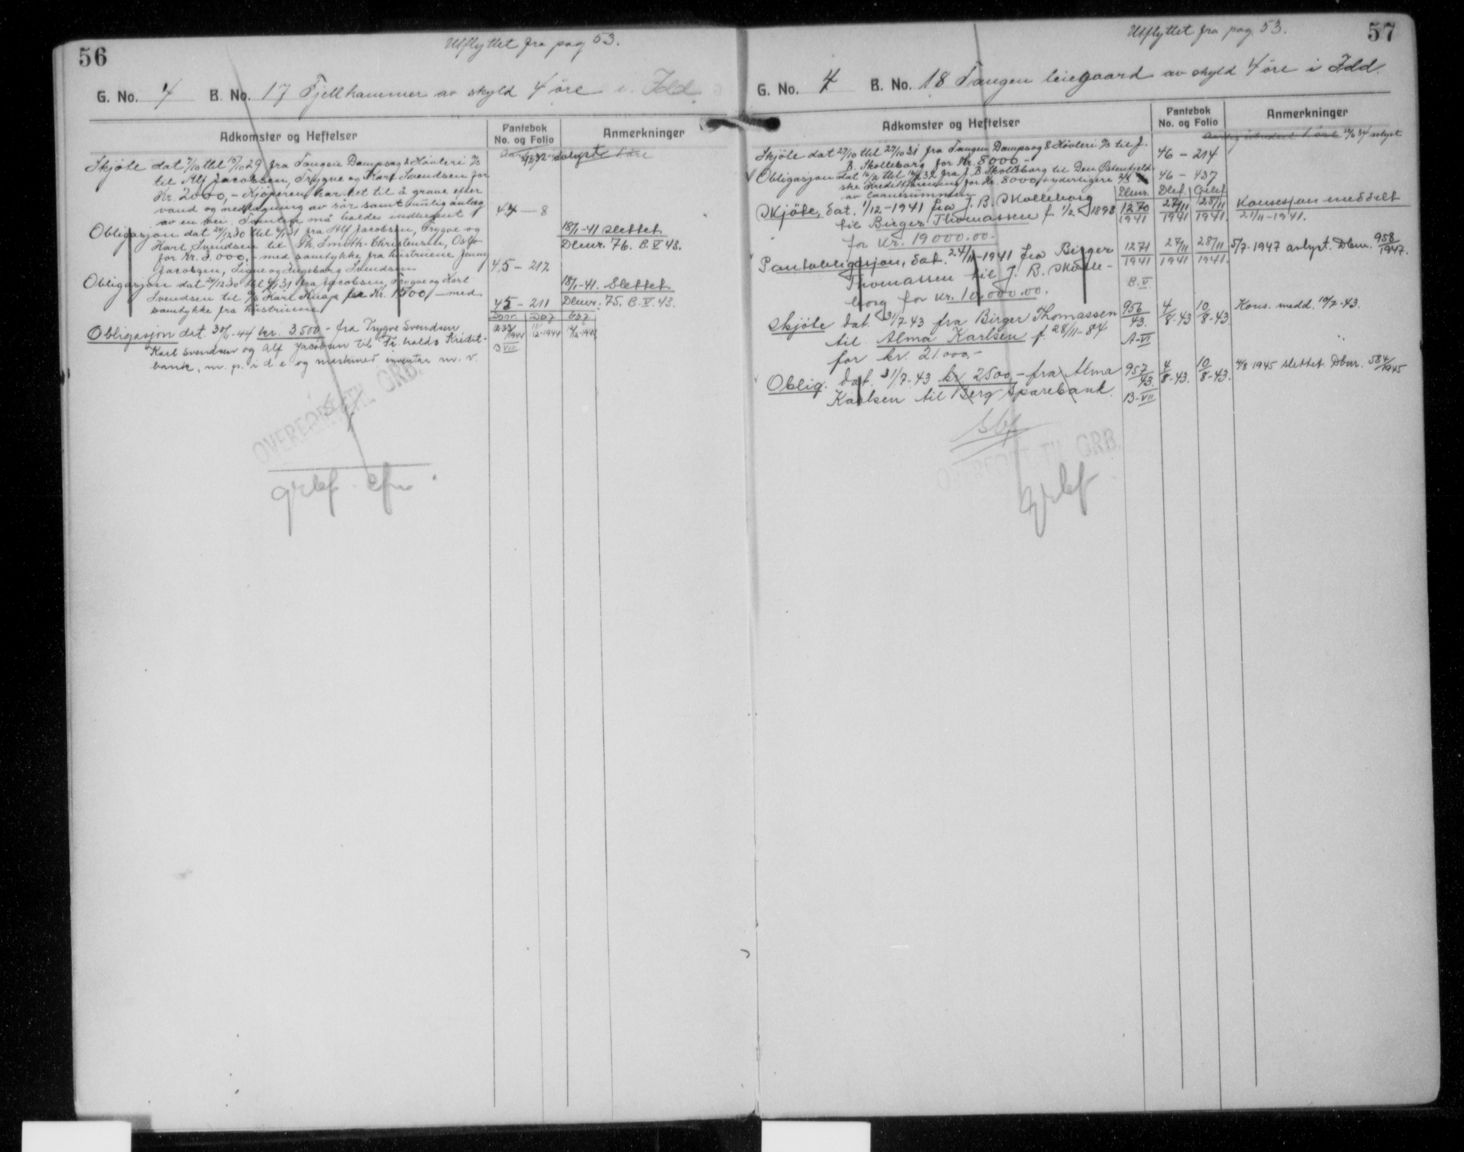 56
Utflyttet fra pag 53.
G. No. 4 B. No. 17 Fjellhammer av skyld 4 øre i Idd
Adkomster og Heftelser
Pantebok No. og Folio
Anmerkninger
Skjøte dat 7/10 tbl 10/10 29 fra Tangen Dampsag & Høvleri A/S
til Alf Jacobsen, Trygve og Karl Svendsen for
Kr. 2000,- Kjøperen har ret til å grave efter
vand og nedlægning av rør samt
av en bei. Tomten må holdes indhegnet
44 — 8
Obligasjon dat 20/12 30 tbl 31 fra Alf Jacobsen, Trygve og
Karl Svendsen til Th. Smith-Christensen, Oslo
for Kr. 3.000,- med samtykke fra hustruene Jenny
Jacobsen, Signe og Ingeborg Svendsen
45 — 212
18/1-41 slettet
Dbnr. 76. B. V 43.
Obligasjon dat 20/12 30 tbl 31 fra Jacobsen, Trygve og Karl
Svendsen til Karl Knap for Kr. 1500,- med
samtykke fra hustruene
45 — 211
18/1-41. Slettet
Dbnr. 75. B. V. 43.
Obligasjon dat. 30/5-44 kr. 3500,- fra Trygve Svendsen
Karl Svendsen og Alf Jacobsen til Fr.halds Kredit-
bank, m. p. i d. e. og maskiner inventar m. v.
B VII
OVERFØRT TIL GRB.
grbf.
57
Utflyttet fra pag 53.
G. No. 4 B. No. 18 Tangen leiegaard av skyld 4 øre i Idd.
Adkomster og Heftelser
Pantebok No. og Folio
Anmerkninger
Skjøte dat 27/10 tbl 27/10 31 fra Tangen Dampsag & Høvleri A/S til J.
B. Skolleborg for Kr. 8000,-
46 — 214
Obligasjon dat tbl 32 fra J. B. Skolleborg til Den Østenfjeld-
ske Kreditforening for Kr. 8000,-
av lånesummen
46 — 437
Dbnr. Dbf. Gilsf.
Skjøte, dat. 1/12-1941 fra J. B. Skolleborg
til Birger Thomassen f. 1/2 1898
for Kr. 19000.00.
1270/1941 27/11 1941 28/11 1941.
Konsesjon meddelt
21/11-1941.
Pantobligasjon, dat. 24/11-1941 fra Birger
Thomassen til J. B. Skolle-
borg for Kr. 10.000.00.
1271/1941 27/11 1941 28/11 1941.
B. V
5/7-1947 avlyst. Dbnr. 958/1947.
Skjøte dat. 31/7 43 fra Birger Thomassen
til Alma Karlsen f. 28/11-84
for kr. 21000,-
956/43. 4/8-43 10/8-43
A-VI
Kons. medd. 10/7-43.
Oblig. dat. 31/7-43 kr. 2500,- fra Alma
Karlsen til Berg Sparebank.
957/43 4/8-43. 10/8-43.
B-VII
4/8 1945 slettet. Dbnr. 584/1945
OVERFØRT TIL GRB.
grbf